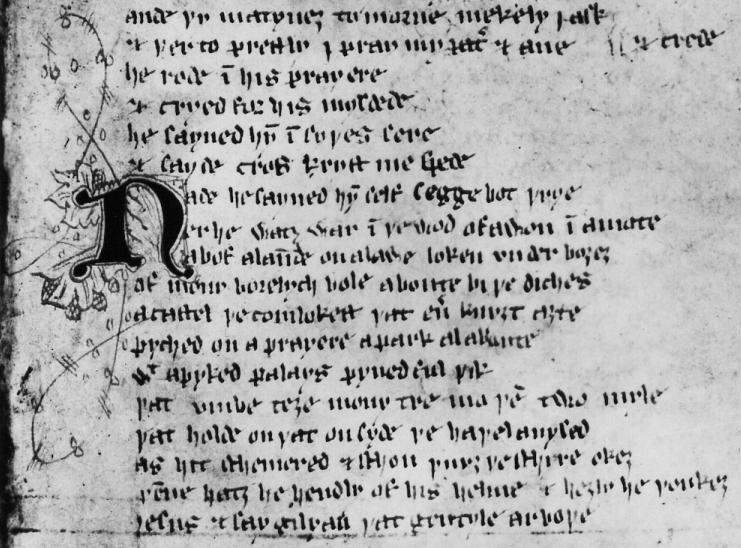 ande þy matyneȝ tomorne mekely I ask
& þerto prestly I pray my pat̄ & aue & crede
he rode ī his prayere
& cryed for his mysdede
he sayned hȳ ī syþes sere
& sayde cros kryst me spede
Nade he sayned hȳ self segge bot þrye
er he watȝ war ī þe wod of a won ī a mote
abof a laūde on a lawe loken vnder boȝeȝ
of mony borelych bole aboute bi þe diches
a castel þe comlokest þat eū knyȝt aȝte
pyched on a prayere a park al aboute
wt a pyked palays pyned ful þik
þat vmbe teȝe mony tre mo þē two myle
þat holde on þat on syde þe haþel auysed
as hit schemered & schon þurȝ þe schyre okeȝ
þēne hatȝ he hendly of his helme & heȝly he þonkeȝ
iesus & say gilyan þat gentyle ar boþe